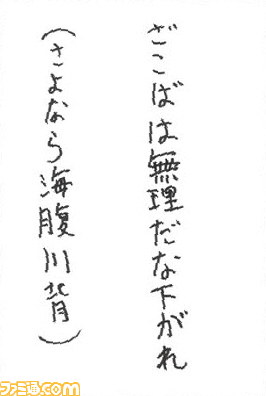 ざこばは無理だな下がれ
（さよなら海腹川背）
ファミ通.com